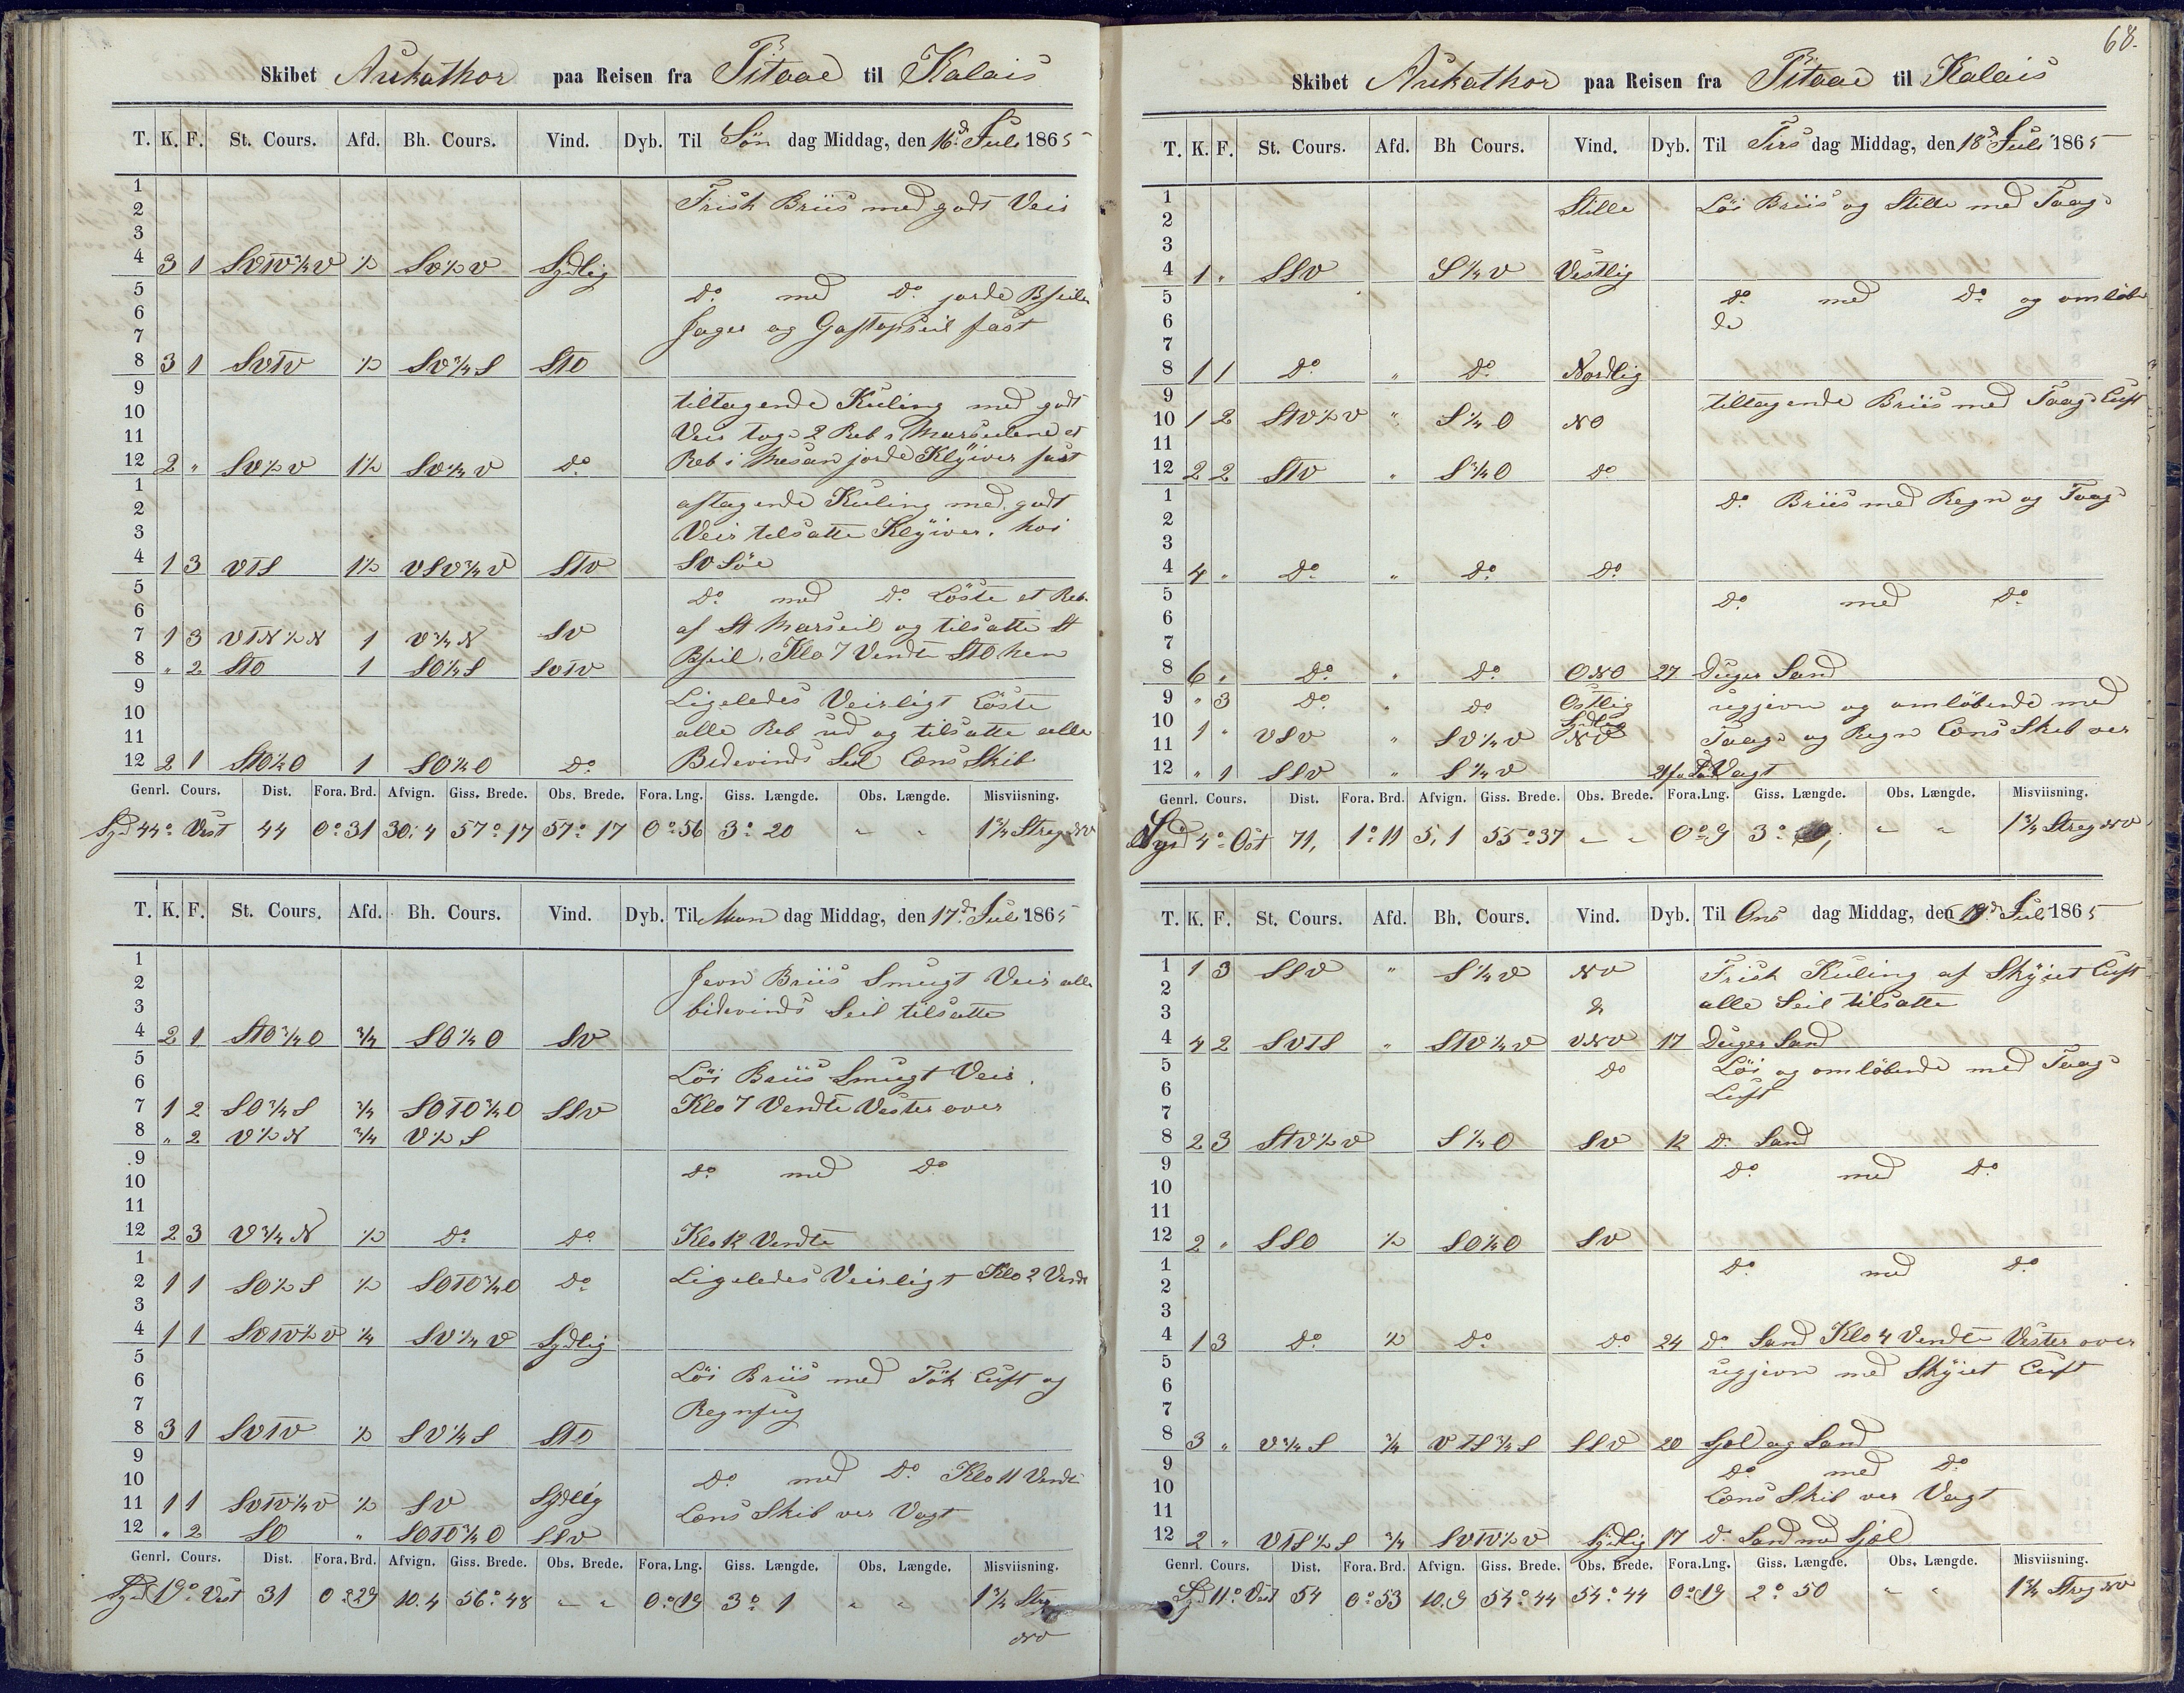 68.
Skibet Aukathor paa Reisen fra Piteaae til Kalais
T. K. F. St. Cours. Afd. Bh. Cours. Vind. Dyb. Til Søn dag Middag, den 16d. Juli 1865
1
2 Frisk Briis med godt Veir
3
4 3 1 SVTV¾V ½ SV½V Sydlig
5 Do. med Do. jorde Bseilen
6 Jager og Gaftopseil fast
7
8 3 1 SVTV ½ SV¾S STO
9
10 tiltagende Kuling med godt
11 Veir tog 2 Reb i Marseilene et
12 2 " SV½V 1½ SV¼V do. Reb i Mesan jorde Klÿiver fast
1
2 aftagende Kuling med godt
3 Veir tilsatte Klÿiver. hoi
4 1 3 VTS 1½ VSV¾V STV SV Söe
5 Do. med Do. Löste et Reb.
6 af St Marseil og tilsatte St
7 1 3 VTN½N 1 V¾N SV
8 " 2 STO 1 SO¼S SVTV Bseil. Klo 7 Vendte STO hen
9 Ligeledes Veirligt Löste
10 alle Reb ud og tilsatte alle
11
12 2 1 STO½O 1 SO¼O Do. Bidevinds Seil Lens Skib
Genrl. Cours. Dist. Fora. Brd. Afvign. Giss. Brede. Obs. Brede. Fora. Lng. Giss. Længde. Obs. Længde. Misviisning.
Syd 44° Vest 44 0°31 30.4 57°17 57°17 0°56 3°20 " " 1¾ Streg NV
T. K. F. St. Cours. Afd. Bh. Cours. Vind. Dyb. Til Man dag Middag, den 17d. Juli 1865
1
2 Jevn Briis Smugt Veir alle
3 bidevinds Seil tilsatte
4 2 1 STO¾O ¾ SO¼O SV
5
6 Löi Briis Smugt Veir.
7 1 2 SO¾S ¾ SOTO¾O SSV Klo 7 Vendte Vester over
8 " 2 V½N ¾ V½S
9 do. med do.
10
11
12 2 3 V¾N ½ do. do. Klo 12 Vendte
1
2 1 1 SO½S ½ SOTO¾O do. Ligeledes Veirligt Klo 2 Vendt
3
4 1 1 SVTV½V ¼ SV¼V Sydlig
5
6 Löi Briis med Tÿk Luft og
7 Regnfug
8 3 1 SVTV ½ SV¼S STO
9
10 Do. med Do. Klo 11 Vendte
11 1 1 SVTV¼V ½ SV Sydlig Lens Skib ver Vagt
12 " 2 SO " SOTO¾O SSV
Genrl. Cours. Dist. Fora. Brd. Afvign. Giss. Brede. Obs. Brede. Fora. Lng. Giss. Længde. Obs. Længde. Misviisning.
Syd 19° Vest 31 0°29 10.4 56°48 " " 0°19 3°1 " " 1¾ Streg
NV
Skibet Aukathor paa Reisen fra Piteaae til Kalais
T. K. F. St. Cours. Afd. Bh Cours. Vind. Dyb. Til Tirs dag Middag, den 18d. Juli 1865
1 Stille Löi Briis og Stille med Taage
2
3
4 1 " SSV S¼V Vestlig
5 do. med do. og omløben
6 de
7
8 1 1 do. " do. Nordlig
9
10 1 2 STV½V " S¼O NO tiltagende Briis med Taage Luft
11
12 2 2 STV " S¾O do.
1 do. Briis med Regn og Taage
2
3
4 4 " do. " do. do.
5 do. med do.
6
7
8 6 " do. " do. ONO 27 Duger Sand
9 " 3 do. " do Ostlig ugjevn og omløbende med
10 Sydlig
11 1 " VSV " SV¼V NV Taage og Regn Lens Skib ver
12 " 1 SSV " S¼V 21 Vagt
Genrl. Cours. Dist. Fora. Brd. Afvign. Giss. Brede. Obs. Brede. Fora.Lng. Giss. Længde. Obs. Længde. Misviisning.
Syd 4° Ost 71, 1°11 5,1 55°37 " " 0°9 3° " " 1¾ Streg NV
T. K. F. St. Cours. Afd. Bh. Cours. Vind. Dyb. Til Ons dag Middag, den 19d. Juli 1865
1 1 3 SSV " S¼V NV Frisk Kuling af Skÿiet Luft
2
3 alle Seil tilsatte
4 4 2 SVTS " STV¼V VNV 17 Duger Sand
5 do Löi og omløbende med Taage
6 Luft
7
8 2 3 STV½V S¼O SV 12 do. Sand
9 do. med do.
10
11
12 2 " SSO ½ SO½O SV
1 do. med do.
2
3
4 1 3 do. ½ do. do. 24 do. Sand Klo 4 Vendte Vester over
5 ugjevn med Skÿiet Luft
6
7
8 3 " V¾S ¾ VTS¾S SSV 20 Sjæl og Sand
9 do. med do.
10 Lens Skib ver Vagt
11
12 2 " VTS½S ¾ SVTV½V Sydlig 17 do. Sand med Sjæl
Genrl. Cours. Dist. Fora. Brd. Afvign. Giss. Brede. Obs. Brede. Fora.Lng. Giss. Længde. Obs. Længde. Misviisning.
Syd 11° Vest 54 0°53 10.9 54°44 54°44 0°19 2°50 " " 1¾ Streg NV